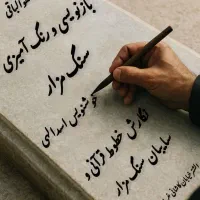 بازنویسی و رنگ آمیزی
سنگ مزار
خوشنویس اسدالهی
نگارش خطوط قرآنی و
سایبان سنگ مزار